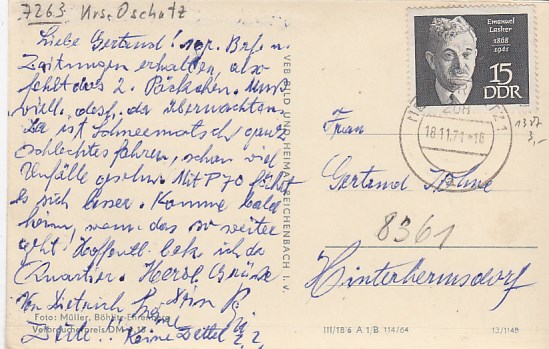 7263 Krs. Oschatz
Liebe Gertrud! Brf. u.
Zeitungen erhalten, also
fehlt das 2. Päckchen. Muß
viell. desh. da überwachten.
Da ist Schneematsch, ganz
schlechtes fahren, schon viel
Unfälle gesehn. Mit P70 fährt
es sich besser. Komme bald
heim, wenn das so weiter
geht. Hoffentl. bek. ich da
Quartier. Herzl. Grüße
Von Dietrich
Keine Zettel
Foto: Müller, Böhlitz-Ehrenberg
Verbraucherpreis DM
VEB BILD UND HEIMAT REICHENBACH I. V.
Emanuel
Lasker
1868
1941
15
DDR
18.11.71-16
1307
3,-
Frau
Gertrud
8361
Hinterhermsdorf
III/18/6 A 1/B 114/64
13/1148